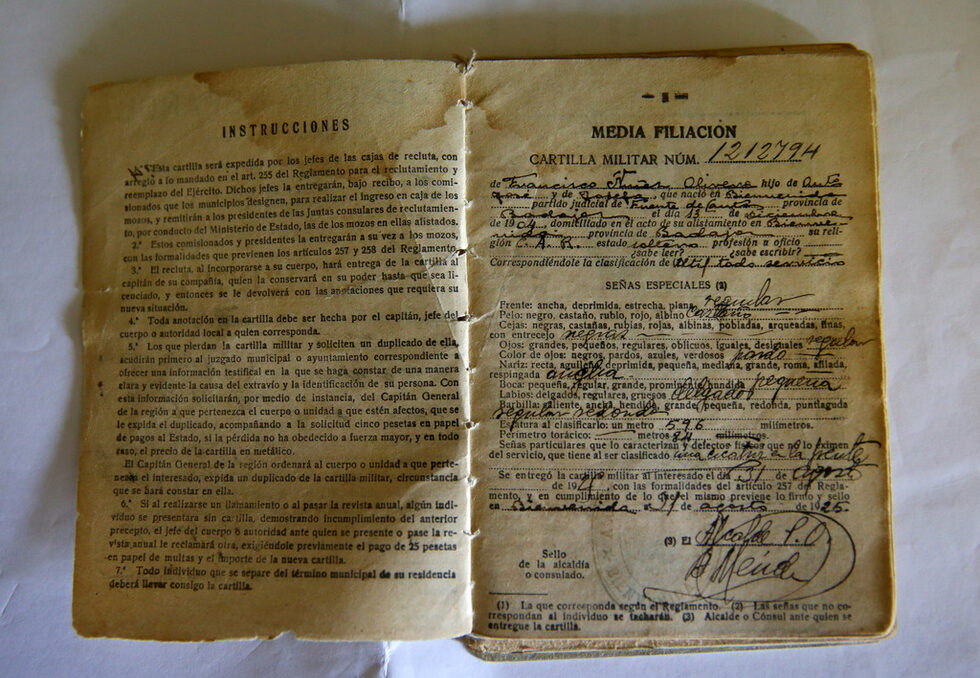 INSTRUCCIONES
1.ª Esta cartilla será expedida por los jefes de las cajas de recluta, con
arreglo a lo mandado en el art. 255 del Reglamento para el reclutamiento y
reemplazo del Ejército. Dichos jefes la entregarán, bajo recibo, a los comi-
sionados que los municipios designen, para realizar el ingreso en caja de los
mozos, y remitirán a los presidentes de las juntas consulares de reclutamien-
to, por conducto del Ministerio de Estado, las de los mozos en ellas alistados.
2.ª Estos comisionados y presidentes la entregarán a su vez a los mozos,
con las formalidades que previenen los artículos 257 y 258 del Reglamento.
3.ª El recluta, al incorporarse a su cuerpo, hará entrega de la cartilla al
capitán de su compañía, quien la conservará en su poder hasta que sea li-
cenciado, y entonces se le devolverá con las anotaciones que requiera su
nueva situación.
4.ª Toda anotación en la cartilla debe ser hecha por el capitán, jefe del
cuerpo o autoridad local a quien corresponda.
5.ª Los que pierdan la cartilla militar y soliciten un duplicado de ella,
acudirán primero al juzgado municipal o ayuntamiento correspondiente a
ofrecer una información testifical en la que se haga constar de una manera
clara y evidente la causa del extravío y la identificación de su persona. Con
esta información solicitarán, por medio de instancia, del Capitán General
de la región a que pertenezca el cuerpo o unidad a que estén afectos, que se
le expida el duplicado, acompañando a la solicitud cinco pesetas en papel
de pagos al Estado, si la pérdida no ha obedecido a fuerza mayor, y en todo
caso, el precio de la cartilla en metálico.
El Capitán General de la región ordenará al cuerpo o unidad a que perte-
nezca el interesado, expida un duplicado de la cartilla militar, circunstancia
que se hará constar en ella.
6.ª Si al realizarse un llamamiento o al pasar la revista anual, algún indi-
viduo se presentara sin cartilla, demostrando incumplimiento del anterior
precepto, el jefe del cuerpo o autoridad ante quien se presente o pase la re-
vista anual le reclamará otra, exigiéndole previamente el pago de 25 pesetas
en papel de multas y el importe de la nueva cartilla.
7.ª Todo individuo que se separe del término municipal de su residencia
deberá llevar consigo la cartilla.
MEDIA FILIACIÓN
CARTILLA MILITAR NÚM. 1212794
de Francisco Olivera hijo de Anto
José y de que nació en Bienvenida
partido judicial de Fuente de Cantos provincia de
Badajoz el día 13 de Diciembre
de 1904, domiciliado en el acto de su alistamiento en Bienve-
nida provincia de Badajoz su reli-
gión C. A. R. estado soltero profesión u oficio
¿sabe leer? ¿sabe escribir?
Correspondiéndole la clasificación de útil todo servicio
SEÑAS ESPECIALES (2)
Frente: ancha, deprimida, estrecha, plana, regular
Pelo: negro, castaño, rubio, rojo, albino castaño
Cejas: negras, castañas, rubias, rojas, albinas, pobladas, arqueadas, finas,
con entrecejo negras
Ojos: grandes, pequeños, regulares, oblicuos, iguales, desiguales regular
Color de ojos: negros, pardos, azules, verdosos pardo
Nariz: recta, aguileña, deprimida, pequeña, mediana, grande, roma, afilada,
respingada ancha
Boca: pequeña, regular, grande, prominente, hundida pequeña
Labios: delgados, regulares, gruesos delgados
Barbilla: saliente, ancha, hendida, grande, pequeña, redonda, puntiaguda
regular redonda
Estatura al clasificarlo: un metro 596 milímetros.
Perímetro torácico: metros 84 milímetros.
Señas particulares que lo caracterizan y defectos físicos que no lo eximen
del servicio, que tiene al ser clasificado una cicatriz en la frente
Se entregó la cartilla militar al interesado el día 31 de Agosto
de 192, con las formalidades del artículo 257 del Regla-
mento, y en cumplimiento de lo que el mismo previene lo firmo y sello
en Bienvenida a 31 de agosto de 1925.
(3) El Alcalde P. O.
B Méndez
Sello
de la alcaldía
o consulado.
(1) La que corresponda según el Reglamento. (2) Las señas que no co-
rrespondan al individuo se tacharán. (3) Alcalde o Cónsul ante quien se
entregue la cartilla.